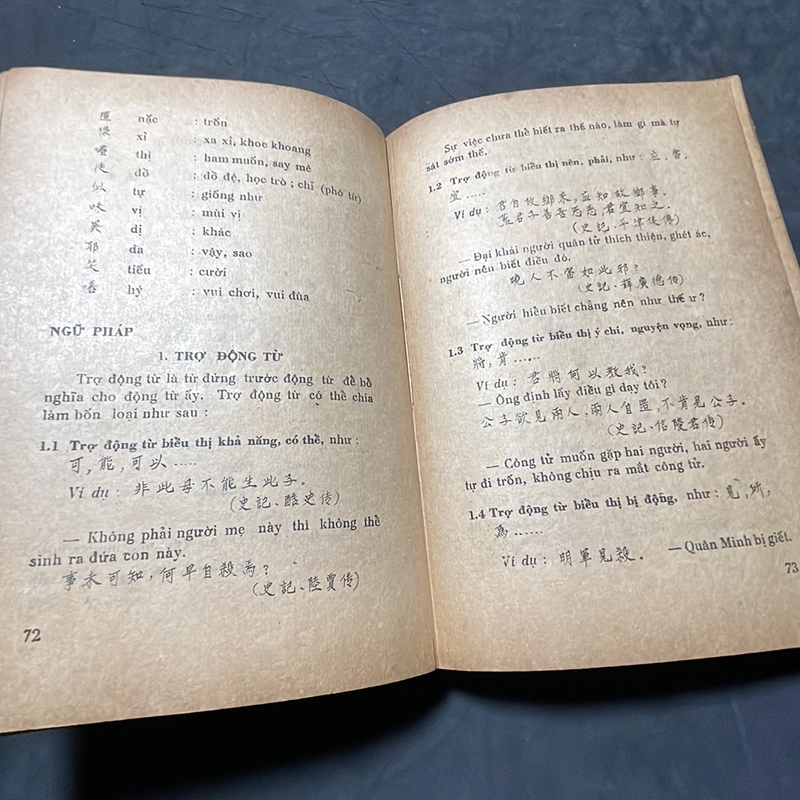 匿 nắc : trốn
侈 xỉ : xa xỉ, khoe khoang
嗜 thị : ham muốn, say mê
徒 đồ : đồ đệ, học trò ; chỉ (phó từ)
似 tự : giống như
味 vị : mùi vị
異 dị : khác
耶 da : vậy, sao
笑 tiếu : cười
hý : vui chơi, vui đùa
NGỮ PHÁP
1. TRỢ ĐỘNG TỪ
Trợ động từ là từ đứng trước động từ để bổ
nghĩa cho động từ ấy. Trợ động từ có thể chia
làm bốn loại như sau :
1.1 Trợ động từ biểu thị khả năng, có thể, như :
可, 能, 可以 .....
Ví dụ : 非此母不能生此子.
(史記、酷史传)
— Không phải người mẹ này thì không thể
sinh ra đứa con này.
事未可知, 何早自殺焉?
(史記、陸賈传)
72
Sự việc chưa thể biết ra thế nào, làm gì mà tự
sát sớm thế.
1.2 Trợ động từ biểu thị nên, phải, như : 应, 當,
宜 .....
Ví dụ : 君自故鄉来, 应知故鄉事.
盖君子善善恶恶, 君宜知之.
(史記、平津侯傳)
— Đại khái người quân tử thích thiện, ghét ác,
người nên biết điều đó.
曉人不當如此邪?
(史記、薛廣德传)
— Người hiểu biết chẳng nên như thế ư ?
1.3 Trợ động từ biểu thị ý chí, nguyện vọng, như :
將, 肯 ......
Ví dụ : 君將何以教我?
— Ông định lấy điều gì dạy tôi ?
公子欲見兩人, 兩人自匿, 不肯見公子.
(史記、信陵君传)
— Công tử muốn gặp hai người, hai người ấy
tự đi trốn, không chịu ra mắt công tử.
1.4 Trợ động từ biểu thị bị động, như : 見, 所,
為 ......
Ví dụ : 明軍見殺. — Quân Minh bị giết.
73